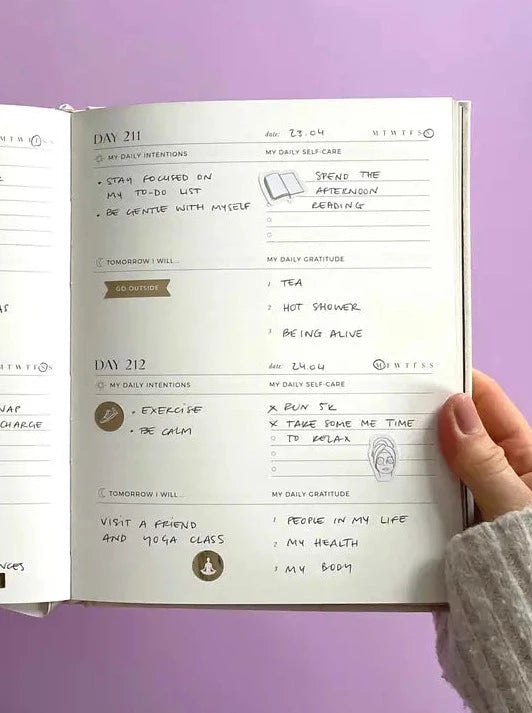 M T W T F S S
AS
M T W T F S S
NAP
CHARGE
NCES
DAY 211
date: 23.04
M T W T F S S
MY DAILY INTENTIONS
• STAY FOCUSED ON
MY TO-DO LIST
• BE GENTLE WITH MYSELF
MY DAILY SELF-CARE
SPEND THE
AFTERNOON
READING
TOMORROW I WILL...
GO OUTSIDE
MY DAILY GRATITUDE
1 TEA
2 HOT SHOWER
3 BEING ALIVE
DAY 212
date: 24.04
M T W T F S S
MY DAILY INTENTIONS
• EXERCISE
• BE CALM
MY DAILY SELF-CARE
X RUN 5K
X TAKE SOME ME TIME
TO RELAX
TOMORROW I WILL...
VISIT A FRIEND
AND YOGA CLASS
MY DAILY GRATITUDE
1 PEOPLE IN MY LIFE
2 MY HEALTH
3 MY BODY